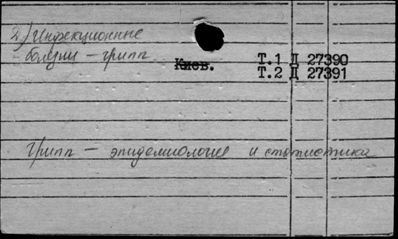 2) Инфекционные
болезни – грипп
Киев.
Т.1 Д 27390
Т.2 Д 27391
Грипп – эпидемиология и статистика